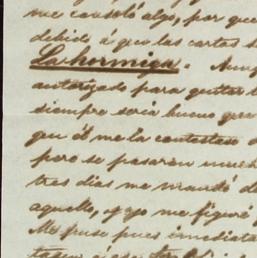 me consoló algo, por que
debido á que las cartas s
La hormiga. Aunq
autorizado para quitar l
siempre será bueno que
que él me la contestase
pero se pasaron much
tres dias me mandó d
aquello, y yo me figuré
Me puse pues inmediata